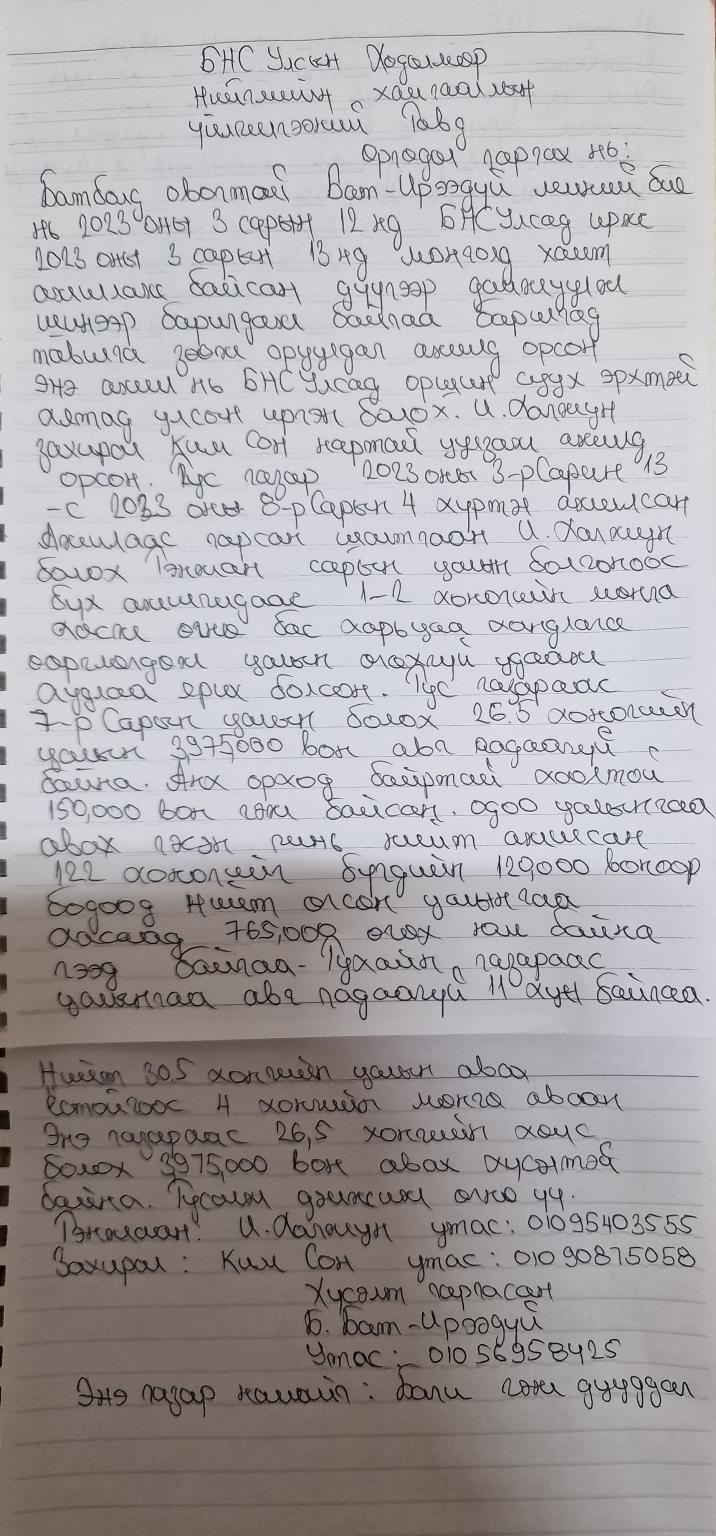 БНС Улсын Ходолмор
Нийгмийн хангаалын
үйлчилгээний Газд
Оргодол гаргах нь:
Батболд овогтой Бат-Ирээдүй миний бие
нь 2023 оны 3 сарын 12 нд БНСУлсад ирж
2023 оны 3 сарын 13 нд монголд хамт
ажиллаж байсан дүүгээр дамжуулж
шинээр баригдаж байгаа барилгад
тавилга зөөж оруулдаг ажилд орсон
Энэ ажил нь БНСУлсад оршин суух эрхтэй
хятад улсын иргэн болох. И.Халжиун
захирал Ким Сон нартай уулзаж ажилд
орсон. Тус газар 2023 оны 3-р Сарын 13
-с 2023 оны 8-р Сарын 4 хүртэл ажилсан
Ажилаас гарсан шалтгаан И.Халжиун
болох Тэнжан сарын цалин болгоноос
бүх ажилчидаас 1-2 хоногийн монго
хасж огно бас харьцаа хандлага
оорчлогдож цалин огохгүй удааж
худлаа ярих болсон. Тус газараас
7-р Сарын цалин болох 26.5 хоногийн
цалин 3,975,000 вон авч чадаагүй
байна. Анх ороход байртай хоолтой
150,000 вон гэж байсан. одоо цалингаа
авах гэсэн чинь нийт ажилсан
122 хоногийг бүгдийг 120,000 воноор
бодоод Нийт огсон цалингаа
хасаад 765,000 огох юм байна
гээд байгаа- Тухайн газараас
цалингаа авч чадаагүй 11 хүн байгаа.
Нийт 30,5 хоногийн цалин авах
ёстойгоос 4 хоногийн монго авсан
Энэ газараас 26,5 хоногийн холс
болох 3975,000 вон авах хүсэлтэй
байна. Тусалж дэмжиж огно уу.
Тэнжан: И.Халжиун утас: 01095403555
Захирал: Ким Сон утас: 01090875058
Хүсэлт гаргасан
Б. Бат-Ирээдүй
Утас: 01056958425
Энэ газар намайг: бали гэж дууддаг